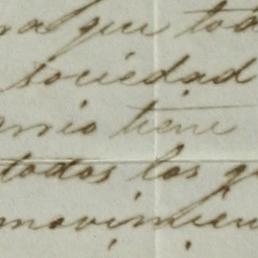 ra que tod
sociedad
enio tiene
todos los q
movimien